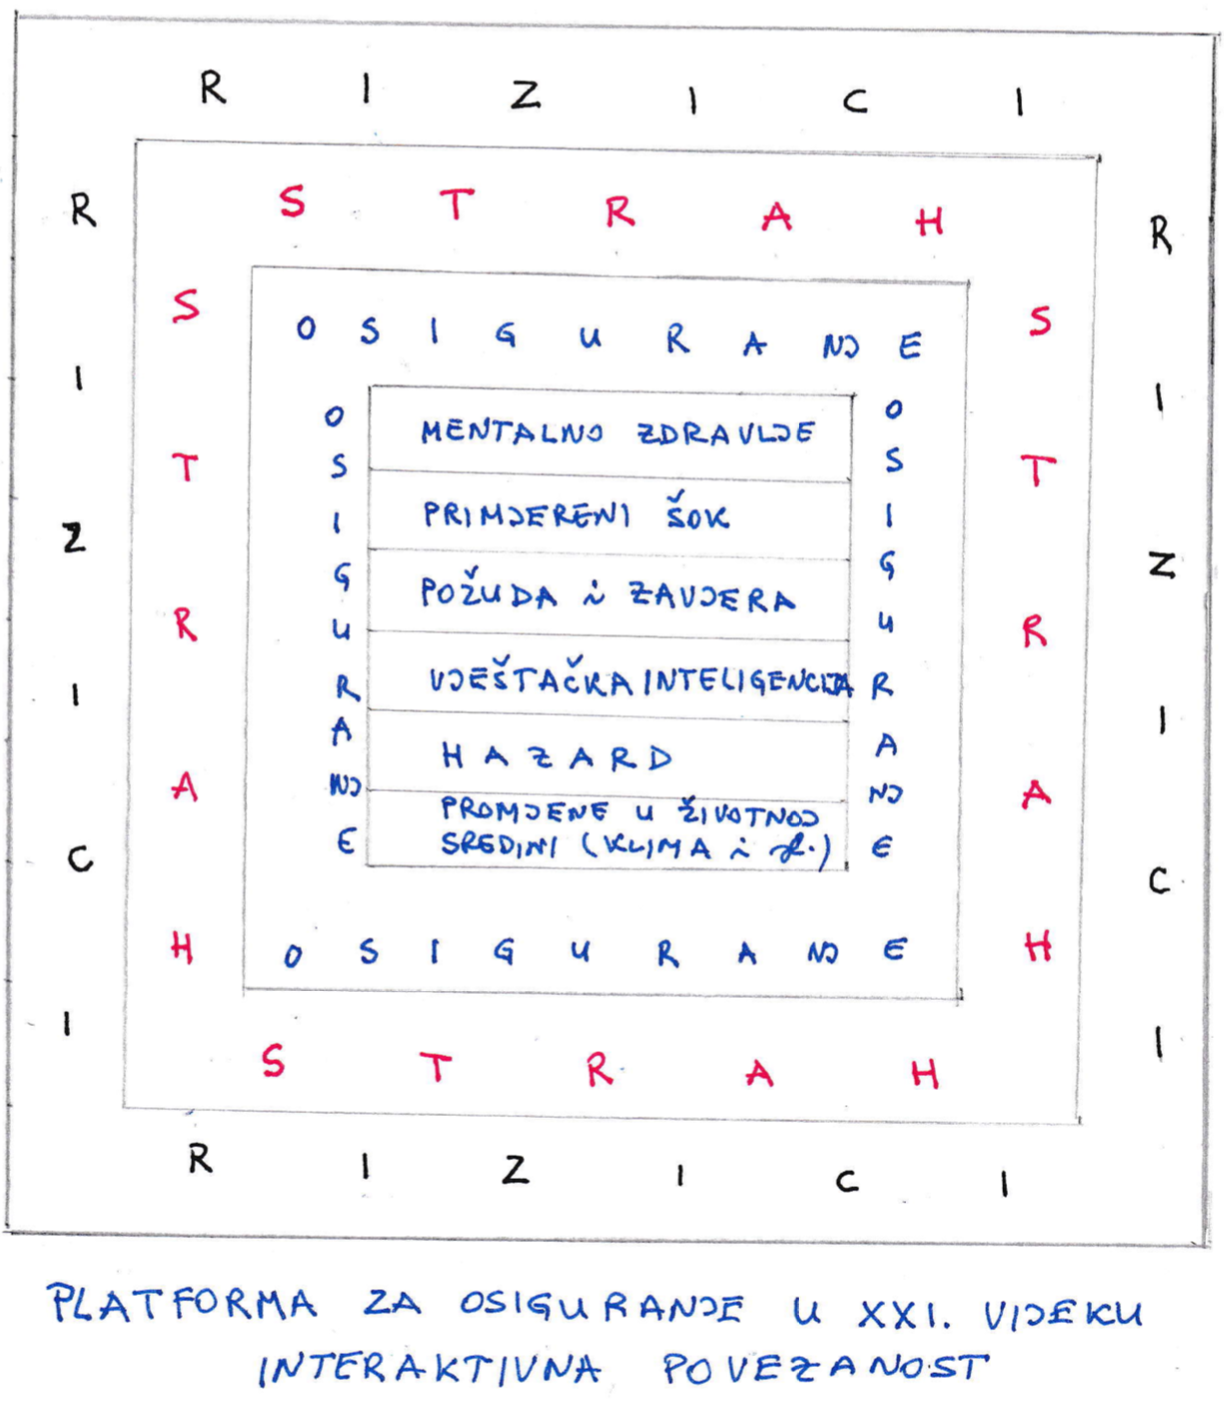 RIZICI
STRAH
OSIGURANJE
RIZICI
STRAH
OSIGURANJE
MENTALNO ZDRAVLJE
PRIMJERENI ŠOK
POŽUDA i ZAVJERA
VJEŠTAČKA INTELIGENCIJA
HAZARD
PROMJENE U ŽIVOTNOJ
SREDINI (KLIMA i dr.)
OSIGURANJE
STRAH
RIZICI
OSIGURANJE
STRAH
RIZICI
PLATFORMA ZA OSIGURANJE U XXI. VIJEKU
INTERAKTIVNA POVEZANOST